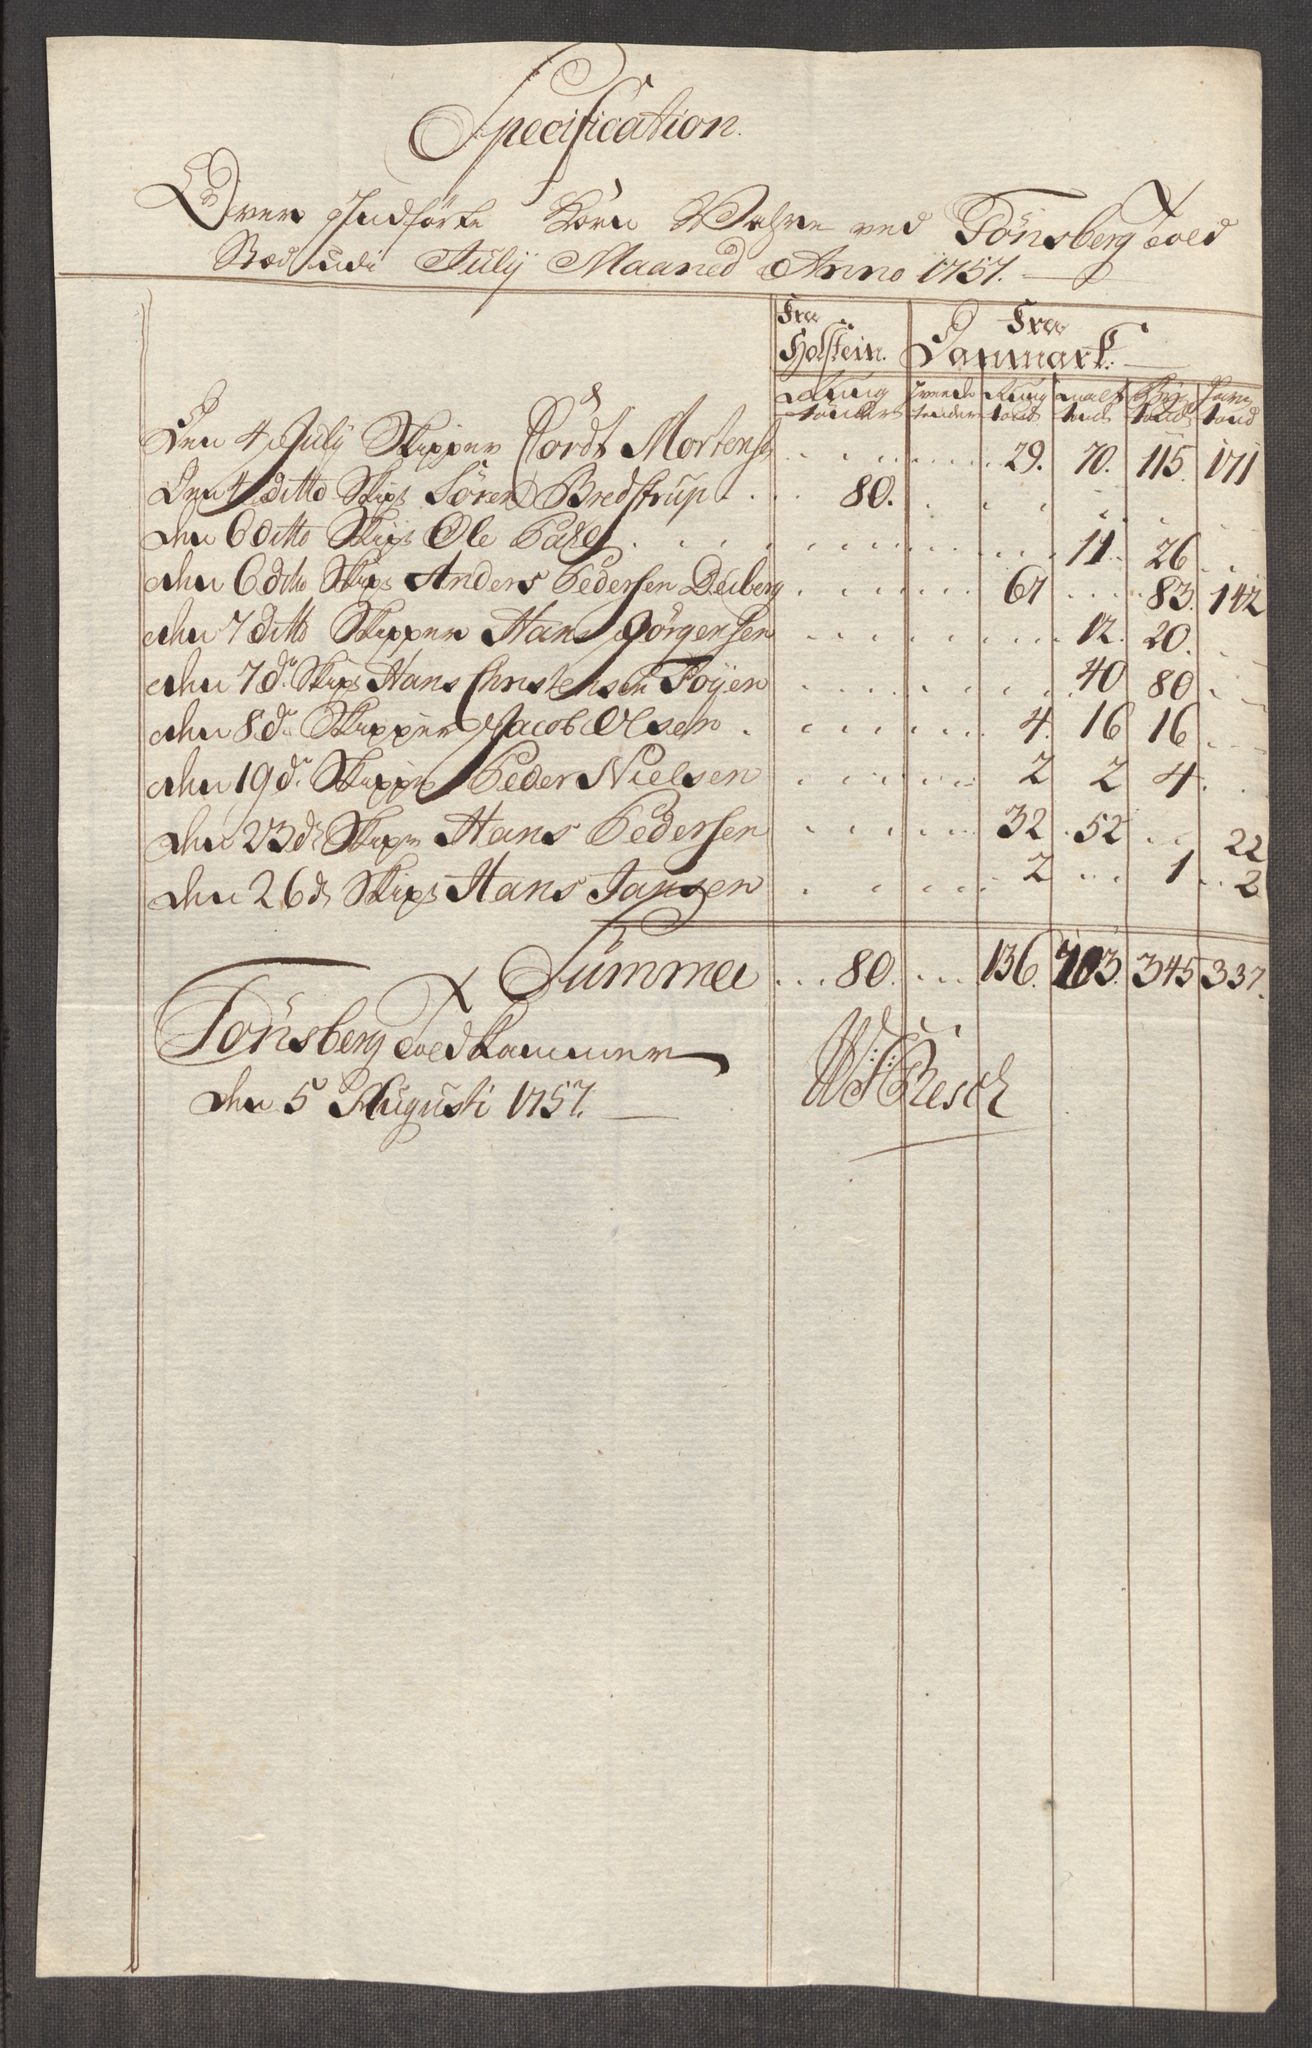 Specification.
Over Indförte Korn Wahre ved Tönsberg Told
Stæd udi Julij Maaned Anno 1757.
Fra Holstein. Fra Danmark.
Rug tönder tönder Rug tönd malt tönd Byg tönd Havre tönd
Den 4 Julij Skipper Cordt Mortensen 29. 70. 115. 171
Den 4 ditto Skipr Sören Bredstrup 80.
den 6 ditto Skipr Ole 11. 26
den 6 ditto Skipr Anders Pedersen Duberg 67 83. 142
den 7 ditto Skipper Hans Jörgensen 12. 20.
den 7 do Skipr Hans Christensen Foÿen 40 80
den 8 do Skipper Jacob Olsen 4. 16 16
den 19 do Skipper Peder Nielsen 2 2 4
den 23 do Skipr Hans Pedersen 32 52 22
den 26 do Skipr Hans Jansen 2 1 2
Summa 80. 136. 203. 345 337.
Tönsberg Toldkammer
den 5 Augusti 1757.
W: F: Resch